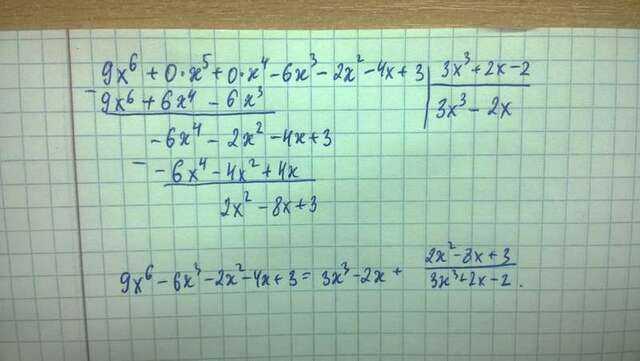 9x⁶ + 0·x⁵ + 0·x⁴ - 6x³ - 2x² - 4x + 3 | 3x³ + 2x - 2
- 9x⁶ + 6x⁴ - 6x³ | 3x³ - 2x
- 6x⁴ - 2x² - 4x + 3
- - 6x⁴ - 4x² + 4x
2x² - 8x + 3
9x⁶ - 6x³ - 2x² - 4x + 3 = 3x³ - 2x + (2x² - 8x + 3)/(3x³ + 2x - 2).